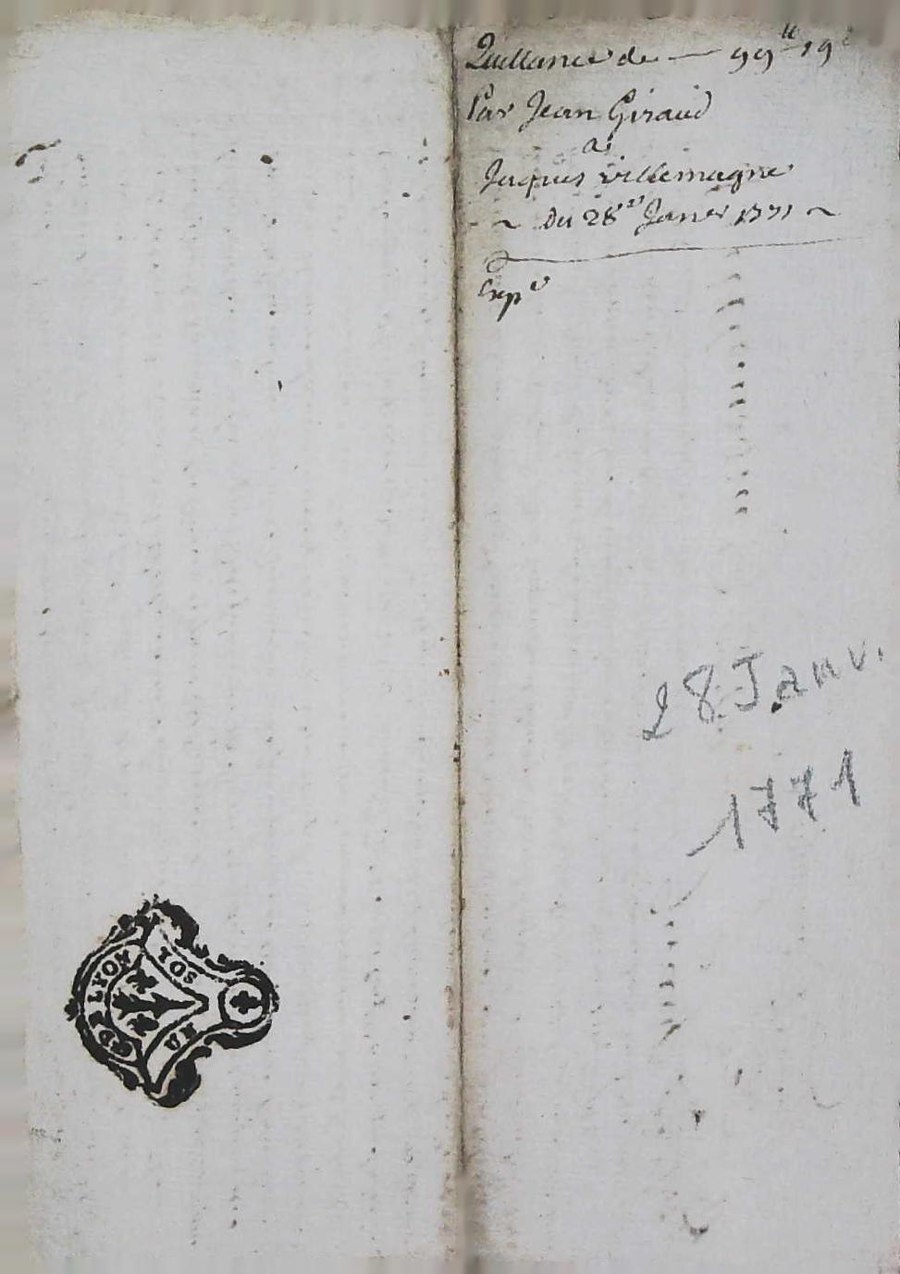 Quittance de — 99ᵗᵗ 19ˢ
Par Jean Giraud
a
Jaques villemagne
~ Du 28ᵉ Janer 1771 ~
Expᵉ
28 Janv.
1771
UN SOL
DE LYON